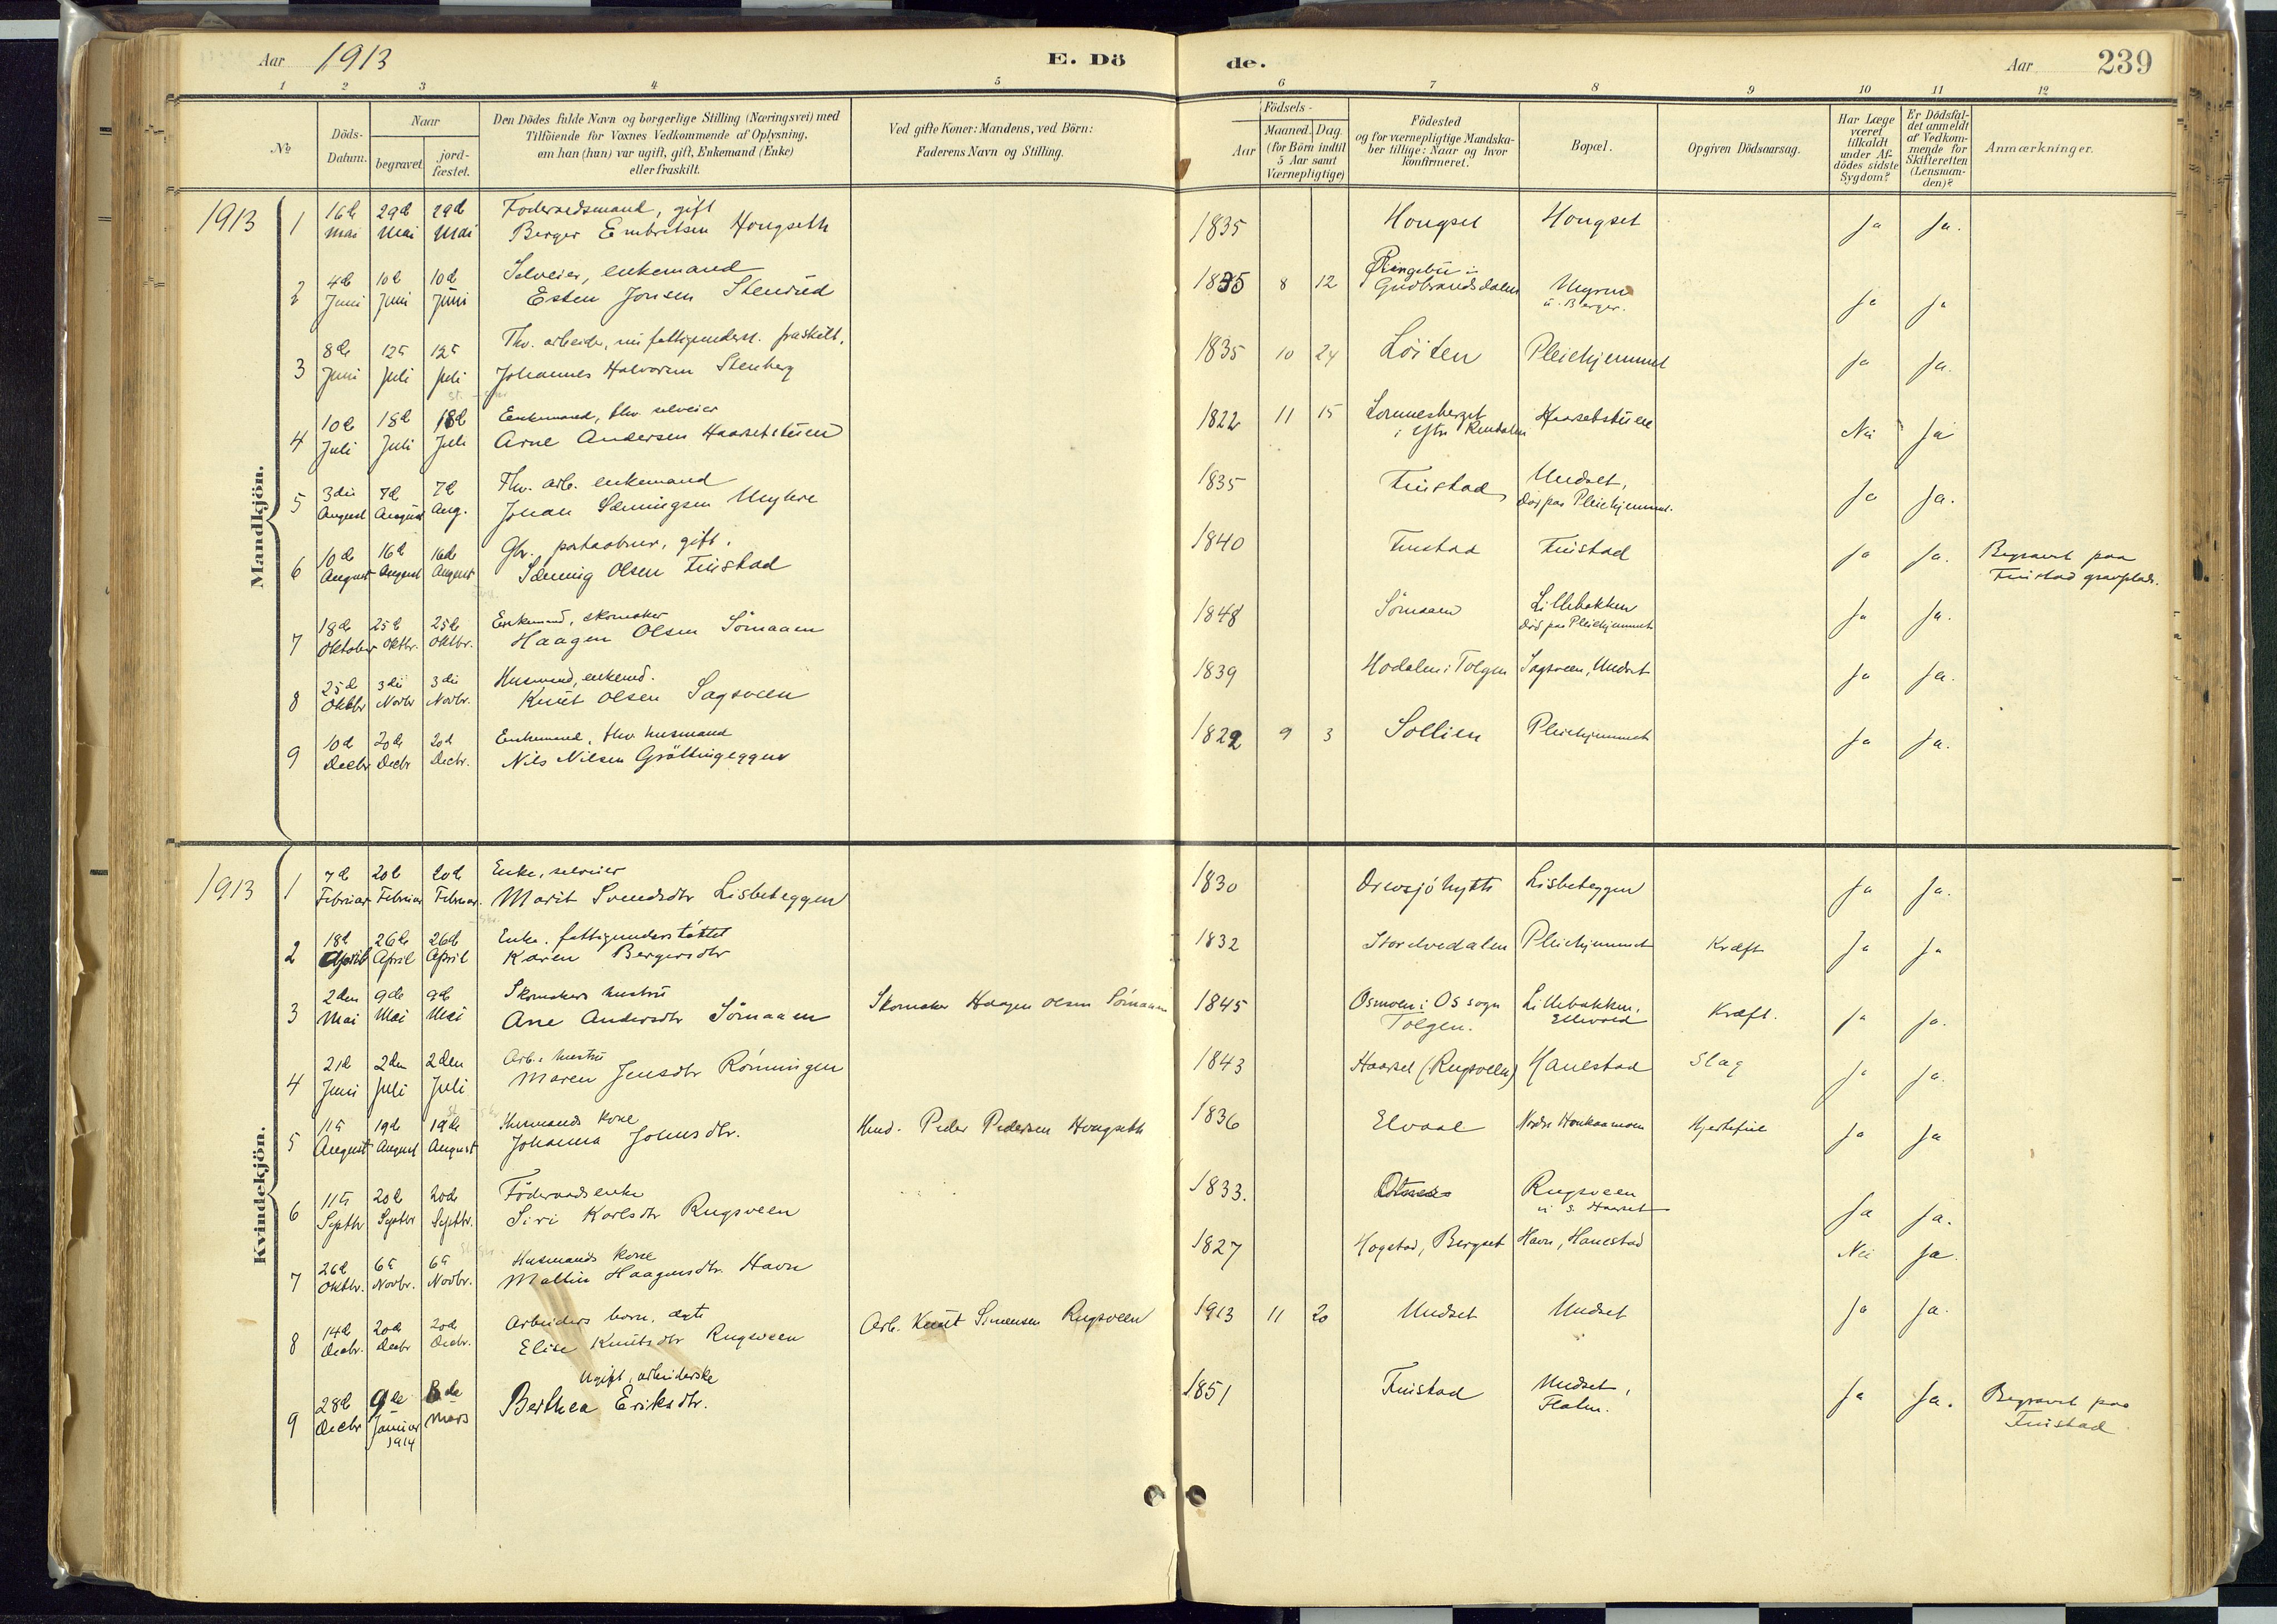 Aar 1913
E. Dö
de.
Aar
239
1 2 3 4 5 6 7 8 9 10 11 12
№
Döds-
Datum.
Naar
begravet.
jord-
fæstet.
Den Dödes fulde Navn og borgerlige Stilling (Næringsvei) med
Tilföiende for Voxnes Vedkommende af Oplysning,
om han (hun) var ugift, gift, Enkemand (Enke)
eller fraskilt.
Ved gifte Koner: Mandens, ved Börn:
Faderens Navn og Stilling.
Födsels-
Aar
Maaned. Dag.
(for Börn indtil
5 Aar samt
Værnepligtige)
Födested
og for værnepligtige Mandska-
ber tillige: Naar og hvor
konfirmeret.
Bopæl.
Opgiven Dödsaarsag.
Har Læge
været
tilkaldt
under Af-
dödes sidste
Sygdom?
Er Dödsfal-
det anmeldt
af Vedkom-
mende for
Skifteretten
(Lensman-
den)?
Anmærkninger.
Mandkjön.
1913 1 16de 29de 29de Foderaadsmand, gift 1835 Hougset Hougset Ja Ja.
Mai Mai Mai Berger Embretsen Hougseth
2 4de 10de 10de Selveier, enkemand 1835 8 12 Ringebu i Ja Ja
Juni Juni Juni Esten Jonsen Stenrud Gudbrandsdalen
u. Berger.
3 8de 12te 12te Thv. arbeider, fraskilt. 1835 10 24 Löiten Pleiehjemmet Ja Ja.
Juni Juli Juli Johannes Halvorsen Stenberg
4 10de 18de 18de Enkemand, thv. selveier 1822 11 15 Lomnesberget Haarsetstuen Nei Ja
Juli Juli Juli Arne Andersen Haarsetstuen i Rendalen
5 3die 7de 7de Thv. arb. enkemand 1835 Finstad Undset, Ja Ja.
August August Aug. Johan Sæmingsen död paa Pleiehjemmet.
6 10de 16de 16de Gbr. gift. 1840 Finstad Finstad Ja Ja. Begravet paa
August August August Sæming Olsen Finstad Finstad gravplads.
7 18de 25de 25de Enkemand, skomaker 1848 Sömaaen Lillebakken Ja Ja.
Oktober Oktbr. Oktbr. Haagen Olsen Sömaaen död paa Pleiehjemmet
8 25de 3die 3die Husmand, enkemd. 1839 Hodalen i Tolgen Sagsveen, Undset Ja Ja.
Oktbr Novbr Novbr. Knut Olsen Sagsveen
9 10de 20de 20de Enkemand, thv husmand 1822 9 3 Sollien Pleiehjemmet Ja Ja.
Decbr Decbr Decbr. Nils Nilsen Gröttingeggen
Kvindekjön.
1913 1 7de 20de 20de Enke, selveier 1830 Drevsjöhytte Lisbeteggen Ja Ja.
Februar Februar Februar. Marit Svendsdtr Lisbeteggen
2 18de 26de 26de Enke. fattigunderstöttet 1832 Storelvedalen Pleiehjemmet Kræft Ja Ja
April April April Karen Bergersdtr
3 2den 9de 9de Skomakers hustru Skomaker Haagen Olsen Sömaaen 1845 Osmoen i Os sogn Lillebakken, Kræft. Ja Ja.
Mai Mai Mai Ane Andersdtr Sömaaen Tolgen. Ellevold
4 21de 2den 2den Arb. hustru 1843 Haarset (Rugsveen) Hanestad Slag Ja Ja.
Juni Juli Juli Maren Jensdtr Rönningen
5 11te 19de 19de Husmands kone Hmd. Peder Pedersen Hougseth 1836 Elvaal Nordre Ja Ja
August August August Johanna Johnsdtr.
6 11te 20de 20de Föderaadsenke 1833. Rugsveen Ja Ja.
Septbr Septbr Septbr. Siri Karlsdtr Rugsveen u S. Haarset
7 26de 6te 6te Husmands kone 1827 Hogstad, Bergset Havn, Hanestad Nei Ja.
Oktbr. Novbr. Novbr. Mallin Haagensdtr. Havn
8 14de 20de 20de Arbeiders barn, ægte Arb. Knut Simensen Rugsveen 1913 11 20 Undset Undset Ja Ja.
Decbr. Decbr Decbr. Elise Knutsdtr Rugsveen
9 28de 9de 8de Ugift, arbeiderske 1851 Finstad Undset, Ja Ja. Begravet paa
Decbr Januar Mars Berthea Eriksdtr. Finstad
1914